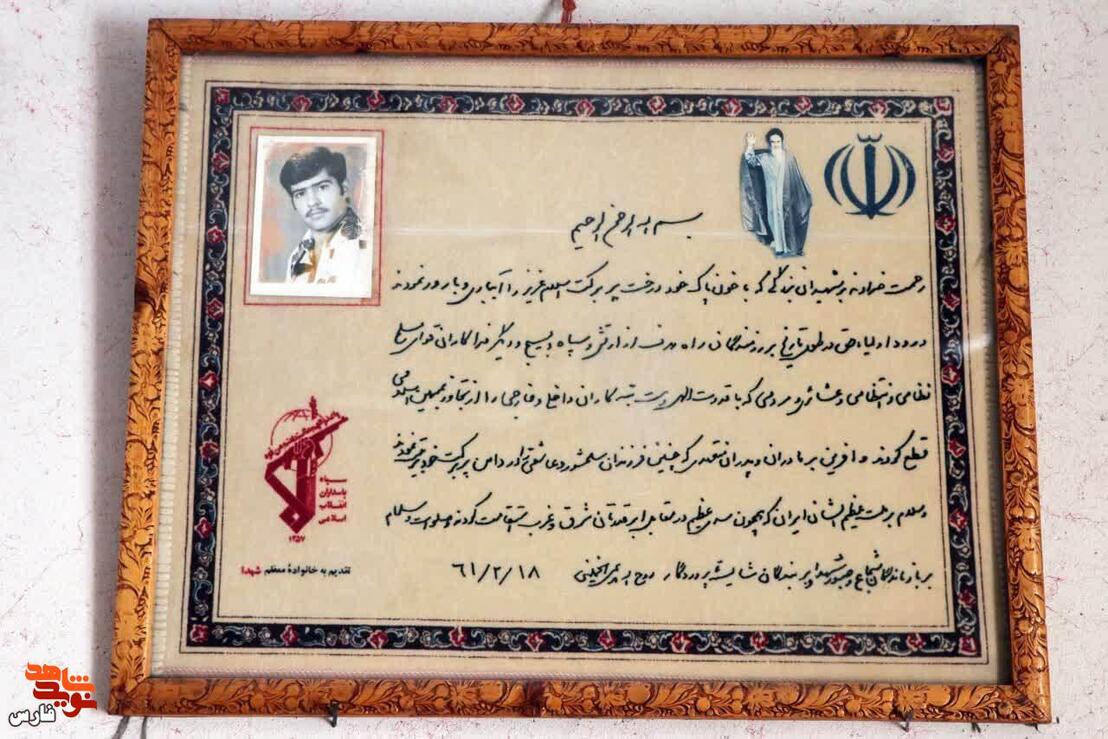 بسم الله الرحمن الرحیم
رحمت خداوند بر شهیدان بزرگی که با خون پاک خود درخت پر برکت اسلام عزیز را آبیاری و بارور نمودند
درود اولیاء حق در طول تاریخ بر رزمندگان راه هدف از ارتش و سپاه و بسیج و دیگر فداکاران قوای مسلح
نظامی و انتظامی و عشائری و مردمی که با قدرت الهی دست جنایتکاران داخلی و خارجی را از تجاوز به میهن اسلامی
قطع کردند و آفرین بر مادران و پدران متعهدی که چنین فرزندان سلحشور و عاشقی را در دامن پر برکت خود تربیت نمودند
و سلام بر ملت عظیم الشان ایران که همچون سدی عظیم در مقابل ابرقدرتان شرق و غرب استقامت کردند و صلوات و سلام
بر بازماندگان شجاع و صبور شهدا و بر بندگان شایسته پروردگار روح الله الموسوی الخمینی ۶۱/۲/۱۸
سپاه
پاسداران
انقلاب
اسلامی
۱۳۵۷
تقدیم به خانوادهٔ معظم شهدا
نوید شاهد
فارس